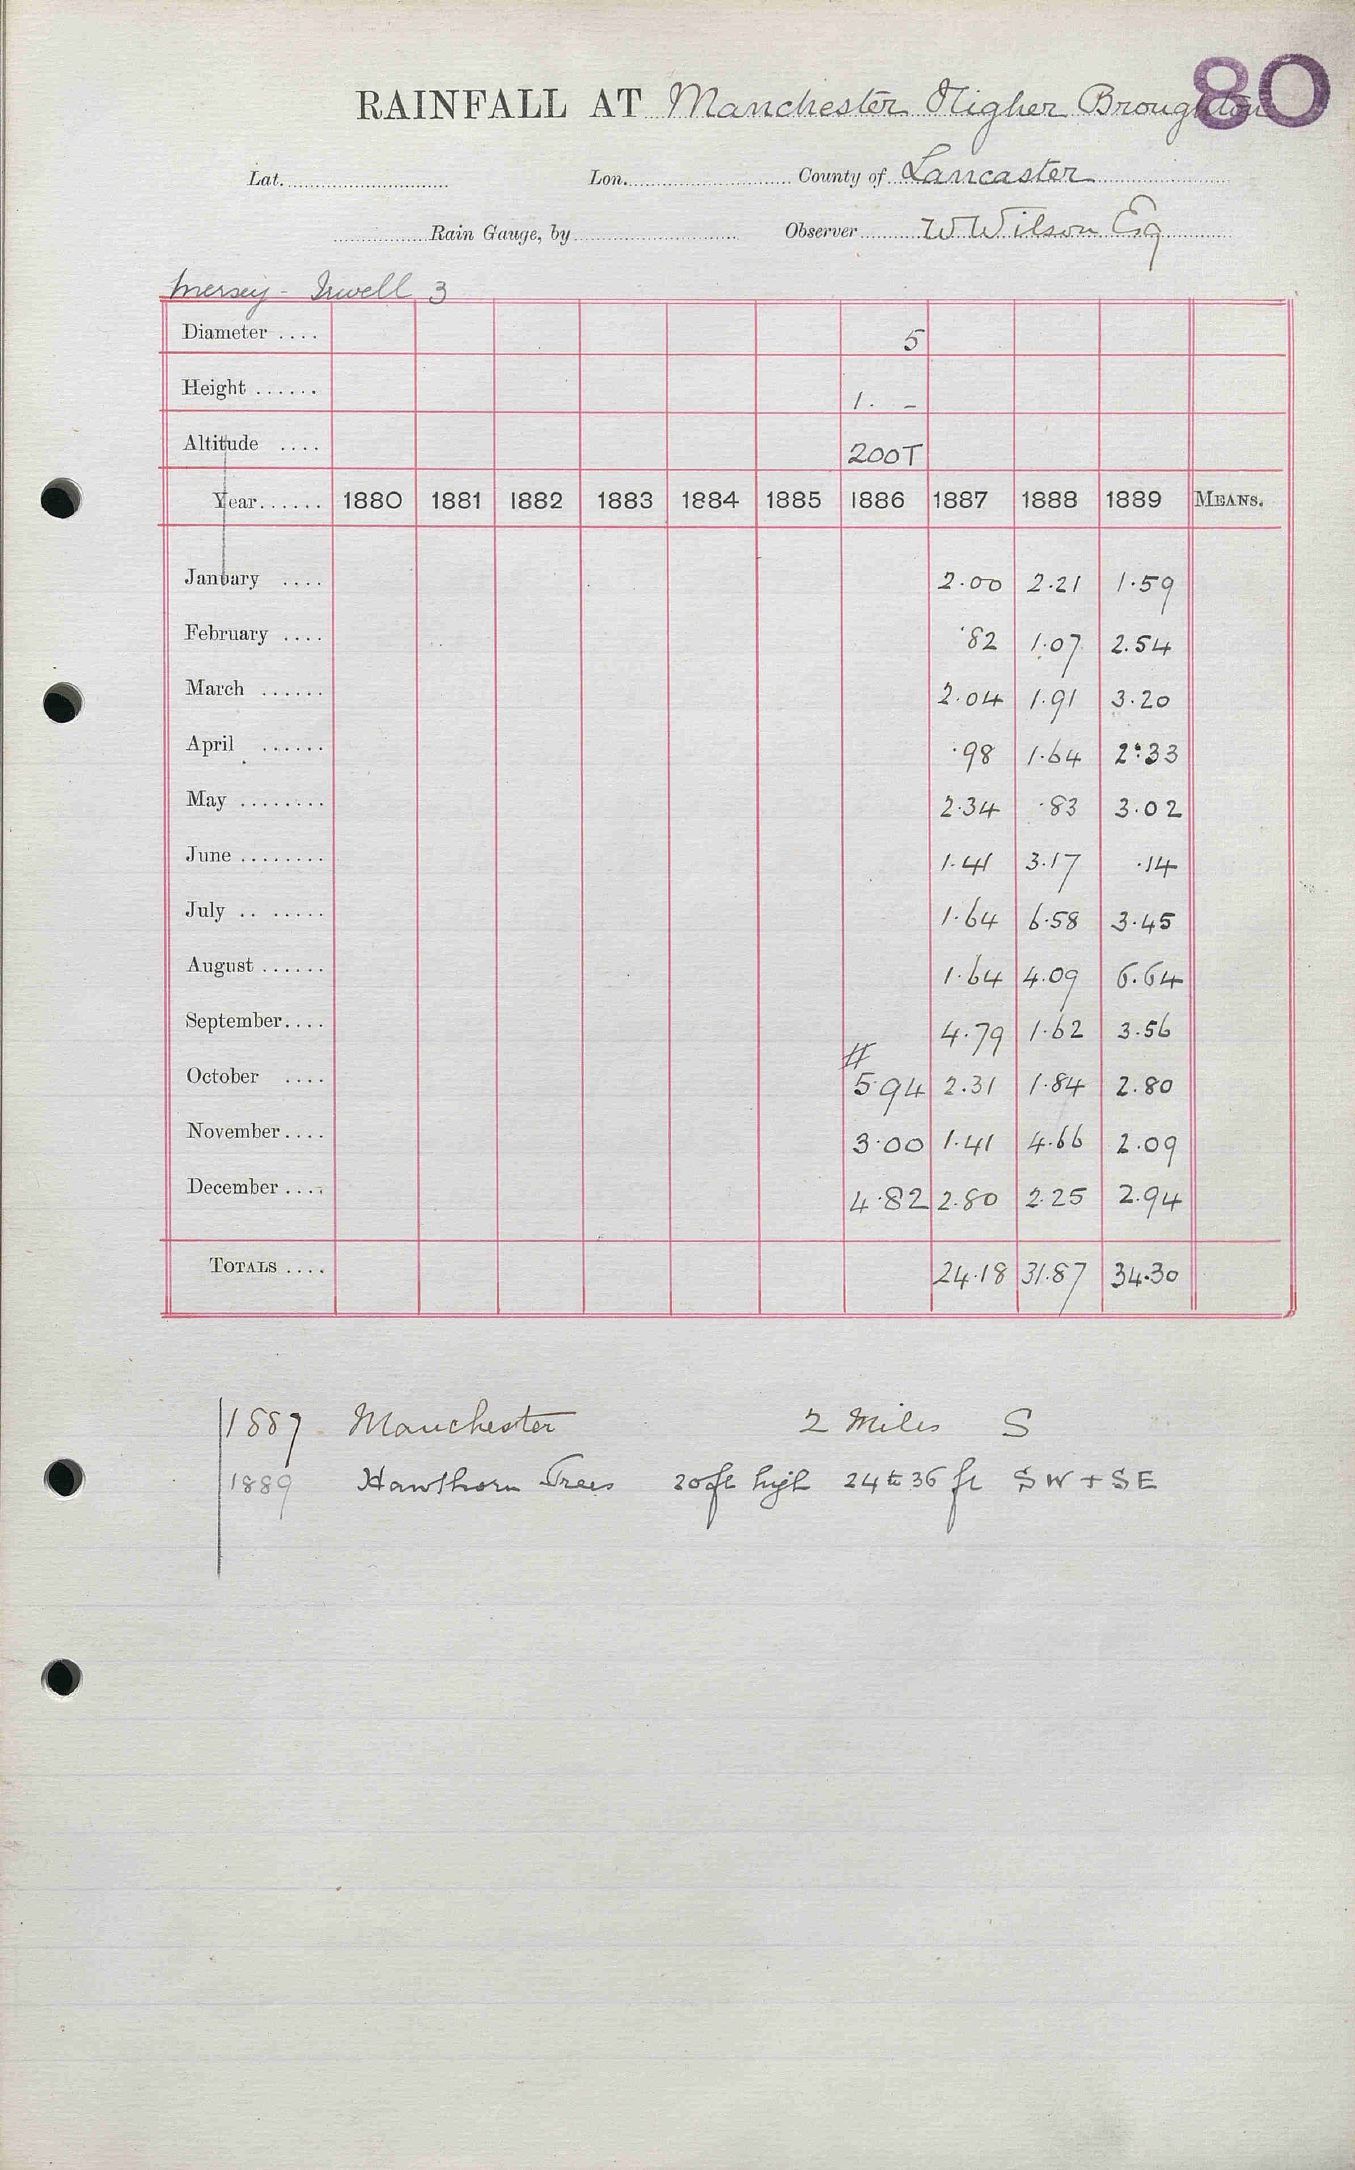 80
RAINFALL AT Manchester Higher Broughton
Lat. Lon. County of Lancaster
Rain Gauge, by Observer W Wilson Esq
Mersey - Irwell 3
Diameter .... 5
Height ...... 1. -
Altitude .... 200T
Year...... 1880 1881 1882 1883 1884 1885 1886 1887 1888 1889 MEANS.
January .... 2.00 2.21 1.59
February .... .82 1.07 2.54
March ...... 2.04 1.91 3.20
April ...... .98 1.64 2.33
May ........ 2.34 .83 3.02
June ........ 1.41 3.17 .14
July .. ..... 1.64 6.58 3.45
August ...... 1.64 4.09 6.64
September.... 4.79 1.62 3.56
#
October .... 5.94 2.31 1.84 2.80
November.... 3.00 1.41 4.66 2.09
December.... 4.82 2.80 2.25 2.94
TOTALS .... 24.18 31.87 34.30
1887 Manchester 2 Miles S
1889 Hawthorn Trees 20 ft high 24 to 36 ft SW + SE